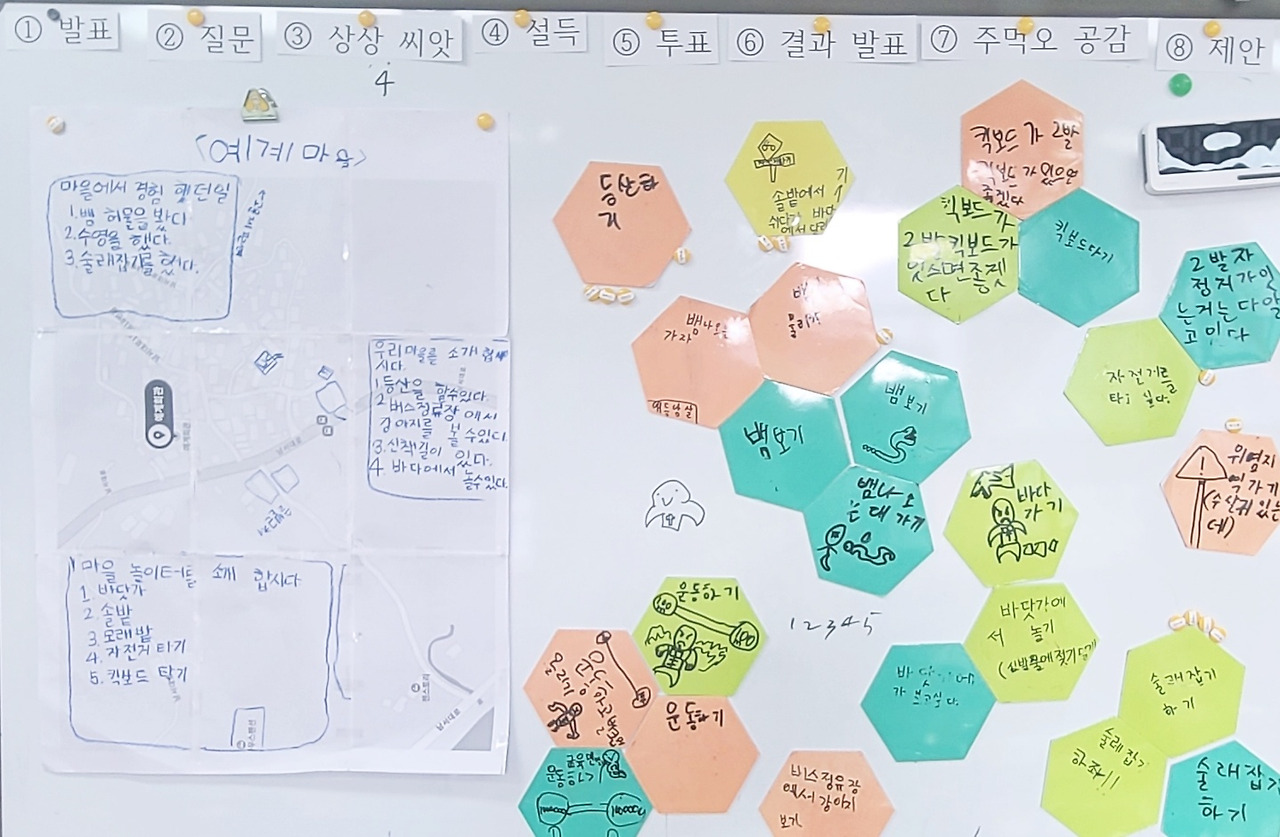 ① 발표
② 질문
③ 상상 씨앗
④ 설득
⑤ 투표
⑥ 결과 발표
⑦ 주먹오 공감
⑧ 제안
4
<예계마을>
마을에서 경험 했던일
1. 뱀 허물을 봤다
2. 수영을 했다.
3. 술래잡기를 했다.
우리마을를 소개합
시다.
1. 등산을 할수있다
2. 버스정류장에서
강아지를 볼 수있다.
3. 산책길이 있다.
4. 바다에서
놀수있다.
마을 놀이터를 소개 합시다
1. 바닷가
2. 솔밭
3. 모래밭
4. 자전거 타기
5. 킥보드 탈기
예계회관
남서대로
남서대로
등산하
기
솔밭에서
킥보드가 2발
킥보드가 있으면
좋겠다
킥보드가
2발킥보드가
잇스면 존켓
다
킥보드타기
2발자
정저가잇
는거는다알
고잇다
자전거를
타기 싶다.
뱀나오는
가자
뱀보기
뱀보기
뱀나오
는대가기
바다
가기
위염지
역가기
(수산귀있는
데)
운동하기
100
100
운동하기
운동하기
1 2 3 4 5
바닷가에
서 놀기
가보고싶다.
술래잡기
하기
술래잡기
하좌!!
술래잡기
하기
버스정유장
에서강아지
보기